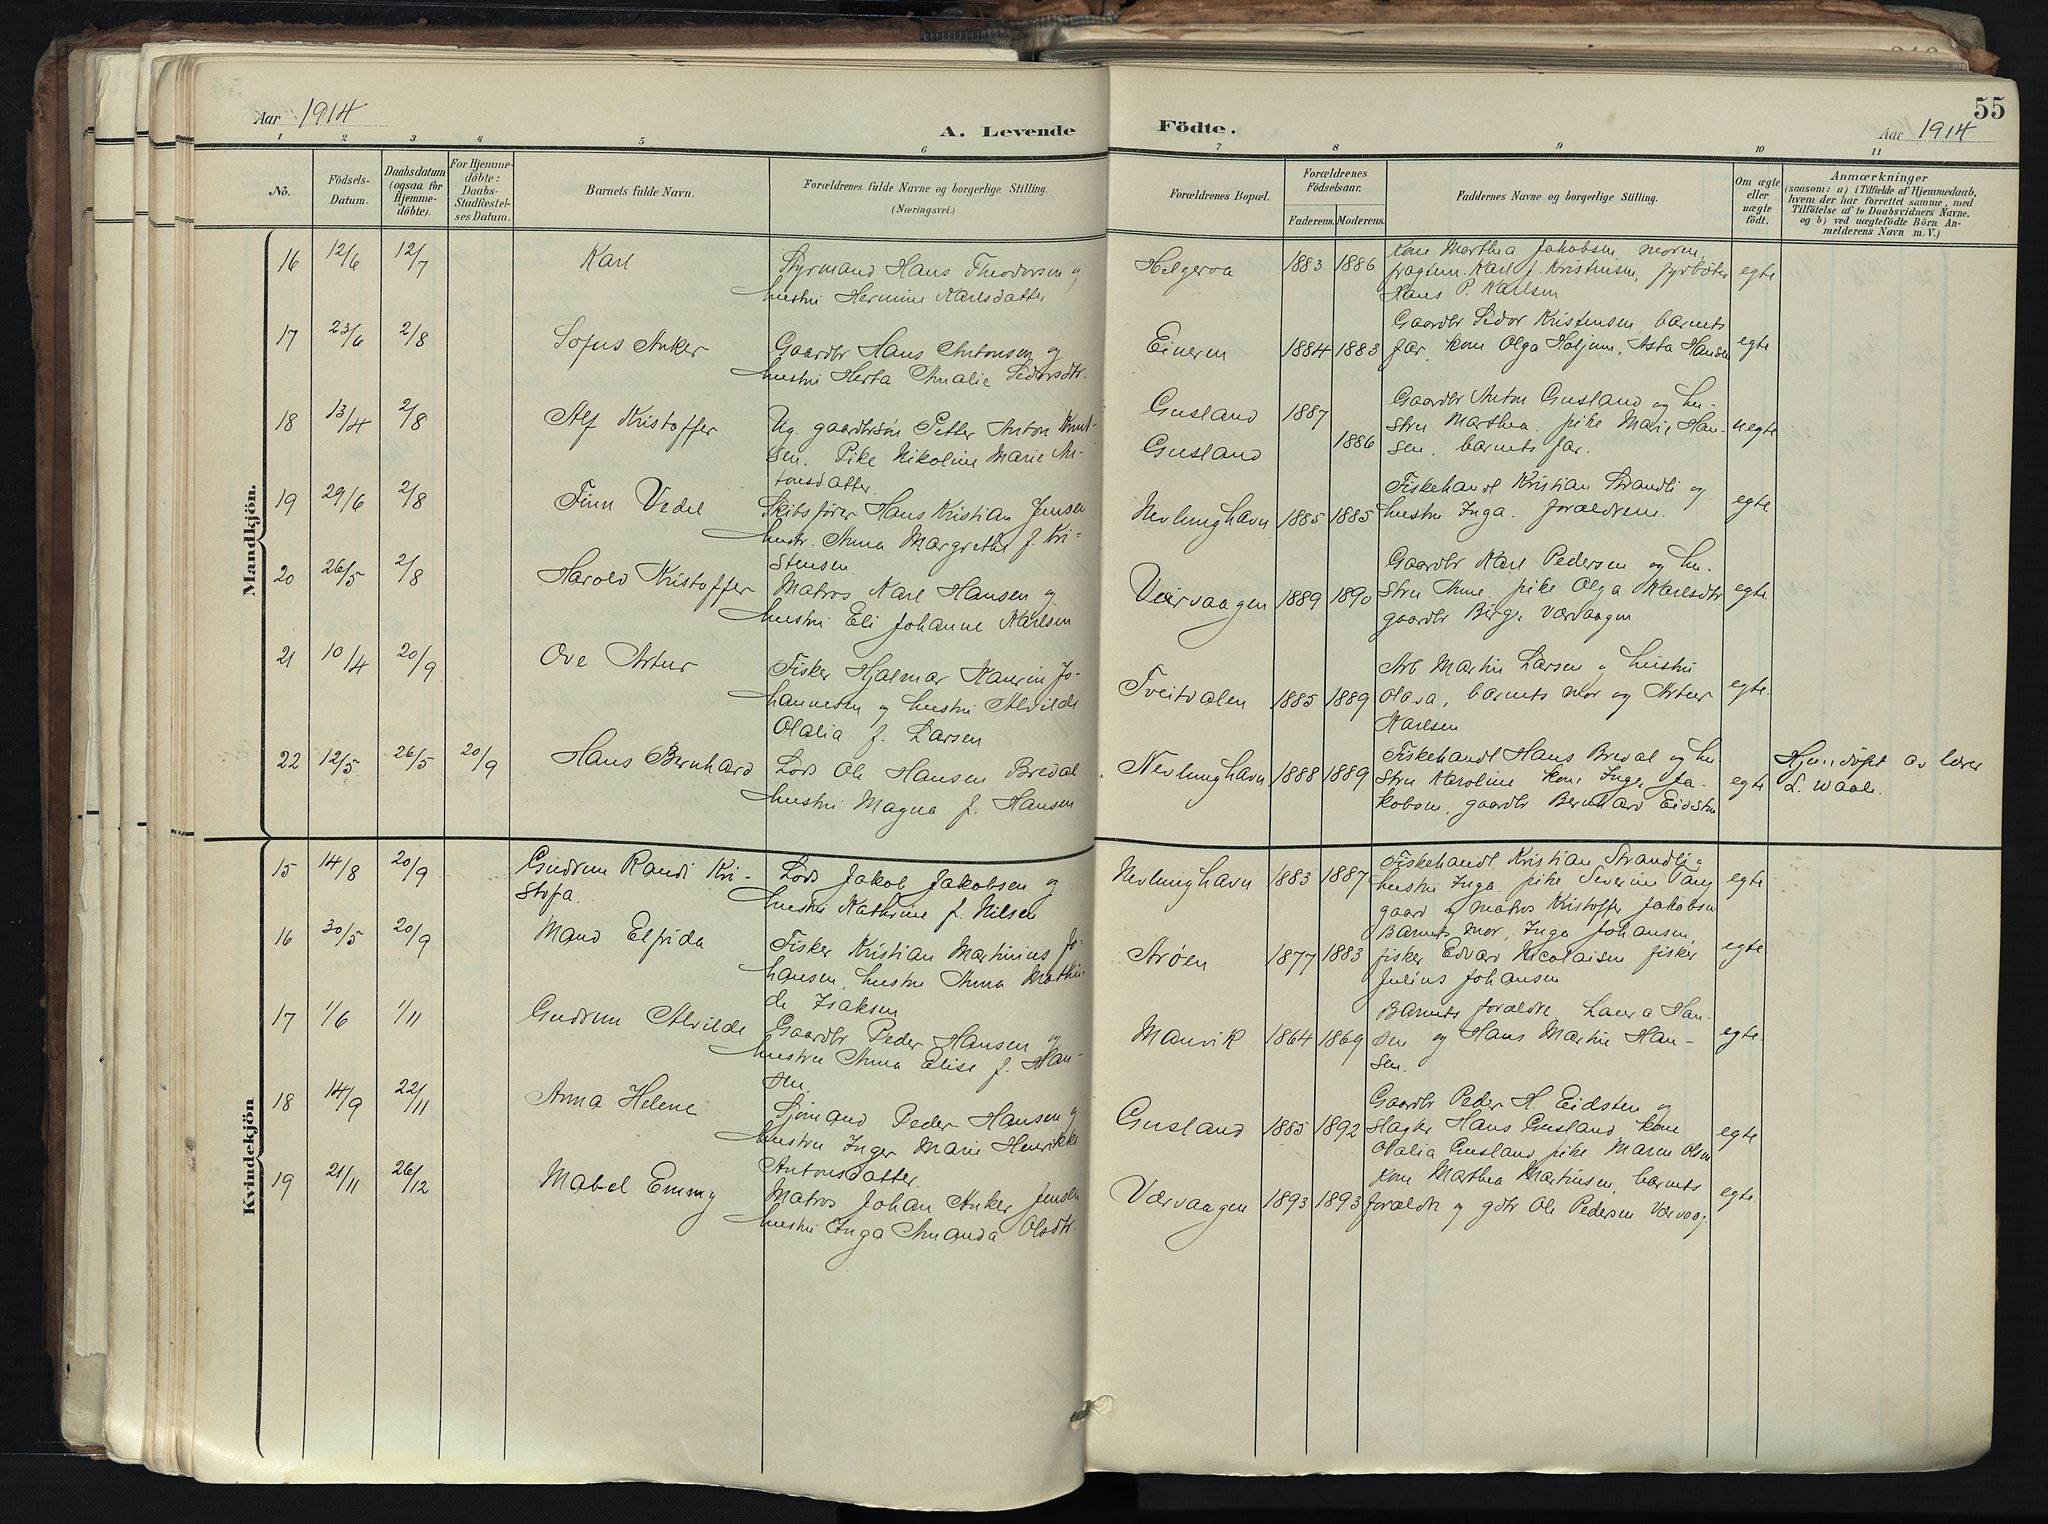 Aar 1914
A. Levende
Födte.
55
Aar 1914
1 2 3 4 5 6 7 8 9 10 11
No.
Födsels-
Datum.
Daabsdatum
(ogsaa for
Hjemme-
döbte).
For Hjemme-
döbte:
Daabs-
Stadfæstel-
ses Datum.
Barnets fulde Navn.
Forældrenes fulde Navne og borgerlige Stilling.
(Næringsvei.)
Forældrenes Bopæl.
Forældrenes
Födselsaar.
Faderens. Moderens.
Faddernes Navne og borgerlige Stilling.
Om ægte
eller
uægte
födt.
Anmærkninger
(saasom: a) i Tilfælde af Hjemmedaab,
hvem der har forrettet samme, med
Tilföielse af to Daabsvidners Navne,
og b) ved uægtefödte Börn An-
melderens Navn m. V.)
Mandkjön.
16 12/6 12/7 Karl
Styrmand Hans Theodorsen og
hustru Hermine Karlsdatter
Helgeroa 1883 1886
Kone Marthea Jakobsen, moren,
Karl J. Kristensen, fyrbøter
Hans P. Karlsen
egte
17 23/6 2/8 Sofus Anker
Gaardbr Hans Antonsen og
hustru Herta Amalie Sidorsdtr.
Eineren 1884 1883
Gaardbr Sidor Kristensen, barnets
far, kone Olga Holjum, Asta Hansen
egte
18 13/4 2/8 Alf Kristoffer
Ug. gaardbrsøn Petter Anton Knut-
sen. Pike Nikoline Marie An-
tonsdatter.
Gusland 1887
Gusland 1886
Gaardbr Anton Gusland og hu-
stru Marthea. pike Marie Han-
sen, barnets far.
uegte
19 29/6 2/8 Finn Vedel
Skibsfører Hans Kristian Jensen
hustr. Anna Margrethe f. Kri-
stensen
Nevlunghavn 1885 1885
Fiskehandl Kristian Strandli og
hustru Inga. forældrene.
egte
20 26/5 2/8 Harold Kristoffer
Matros Karl Hansen og
hustru Eli Johanne Karlsen
Værvaagen 1889 1890
Gaardbr Karl Pedersen og hu-
stru Anne, pike Olga Karlsdtr
gaardbr Birge Værvaagen
egte
21 10/4 20/9 Ove Artur
Fisker Hjalmar Kaurin Jo-
hannesen og hustru Alvilde
Olalia f. Larsen
Tveitdalen 1885 1889
Arb Martin Larsen og hustru
Olava, barnets mor og Artur
Karlsen
egte
22 12/5 26/5 20/9 Hans Bernhard
Lods Ole Hansen Bredal
hustru Magna f. Hansen
Nevlunghavn 1888 1889
Fiskehandl Hans Bredal og hu
stru Karoline kone Inger Ja-
kobsen, gaardbr Bernhard Eidsten
egte
Hjemdöpt av lærer
L. Waale.
Kvindekjön
15 14/8 20/9 Gudrun Randi Kri-
stofa.
Lods Jakob Jakobsen og
hustru Kathrine f. Nilsen
Nevlunghavn 1883 1887
Fiskehandl Kristian Strandli og
hustru Inga. pike Severine Tang
gaard og matros Kristoffer Jakobsen
egte
16 30/5 20/9 Maud Elfrida
Fisker Kristian Martinius Jo-
hansen, hustru Anna Mathil-
de Isaksen
Arøen 1877 1883
Barnets mor, Inga Johansen,
fisker Edvard Nicolaisen fisker
Julius Johansen
egte
17 1/6 1/11 Gudrun Alvilde
Gaardbr Peder Hansen og
hustru Anna Elise f. Han-
sen.
Manvik 1864 1869
Barnets forældre Laura Han-
sen og Hans Martin Han-
sen.
egte
18 14/9 22/11 Anna Helene
Sjömand Peder Hansen og
hustru Inger Marie Henrikke
Antonsdatter.
Gusland 1885 1892
Gaardbr Peder H. Eidsten og
Slagter Hans Gusland kone
Olalia Gusland pike Maren Olsen
egte
19 21/11 26/12 Mabel Emmy
Matros Johan Anker Jensen
hustru Inga Amanda Olsdtr.
Værvaagen 1893 1893
Kone Marthea Martinsen, barnets
forældre og gdbr Ole Pedersen Værvaag.
egte.